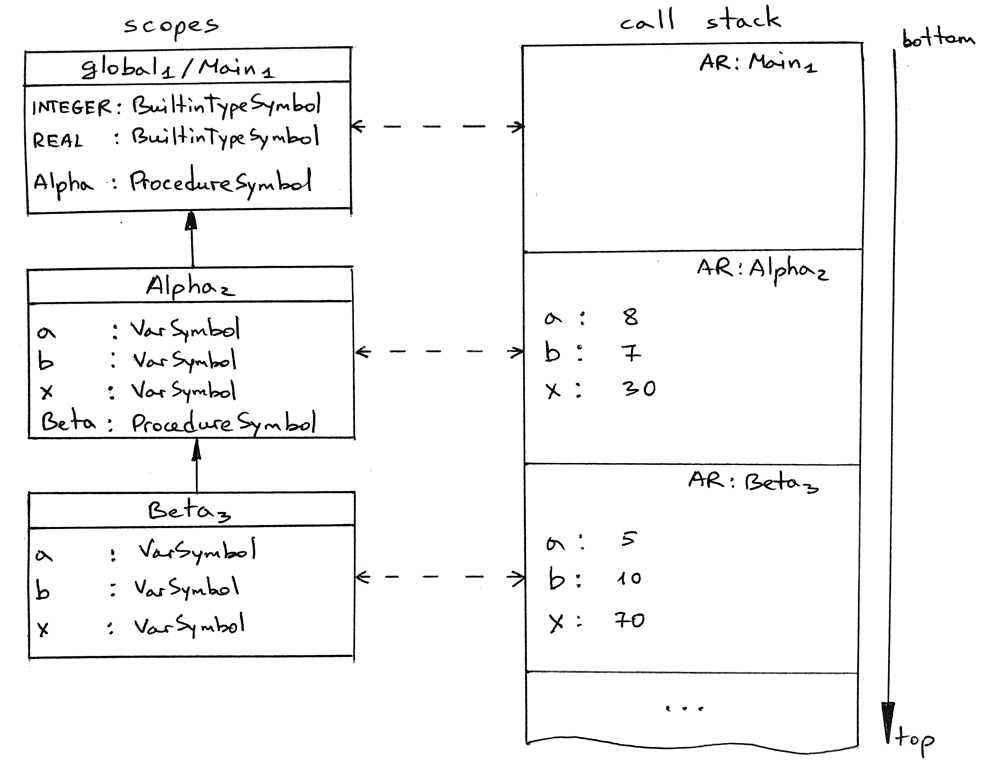 scopes
global₁/Main₁
INTEGER: BuiltinTypeSymbol
REAL : BuiltinTypeSymbol
Alpha : ProcedureSymbol
Alpha₂
a : VarSymbol
b : VarSymbol
x : VarSymbol
Beta : ProcedureSymbol
Beta₃
a : VarSymbol
b : VarSymbol
x : VarSymbol
call stack
AR: Main₁
AR: Alpha₂
a : 8
b : 7
x : 30
AR: Beta₃
a : 5
b : 10
x : 70
...
bottom
top